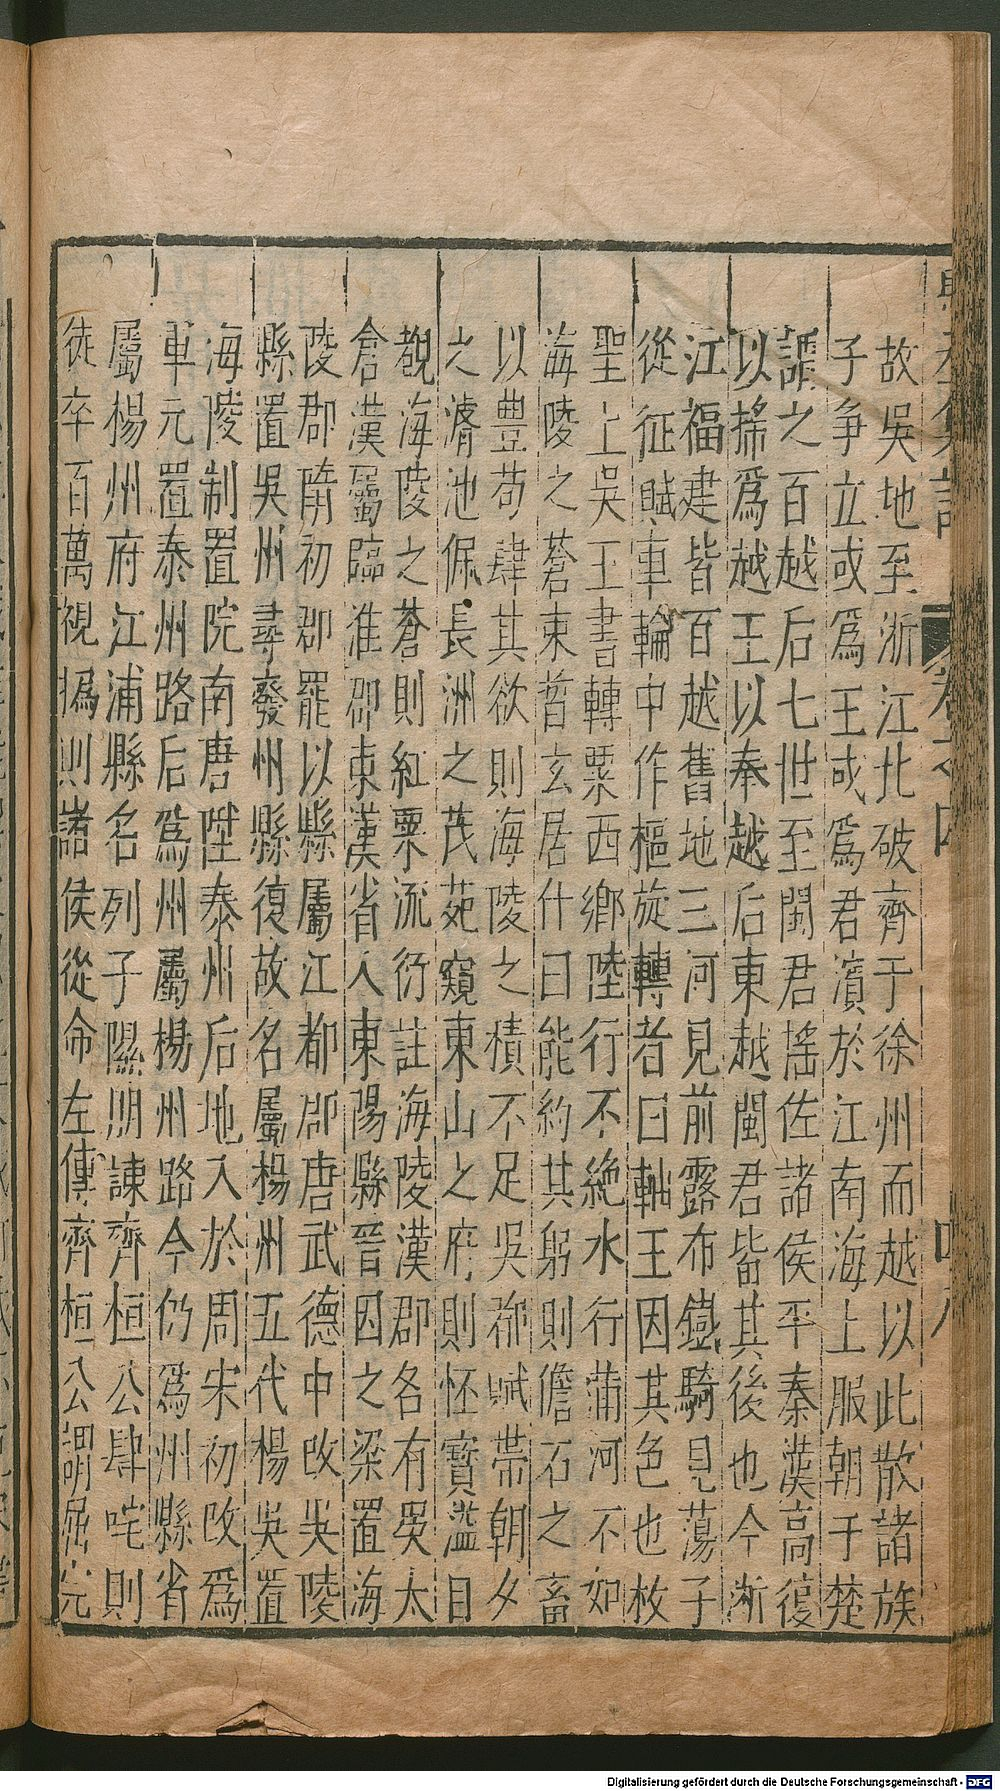 故吳地至浙江北破齊于徐州而越以此散諸族
子爭立或爲王或爲君濱於江南海上服朝于楚
謡之百越后七世至閩君搖佐諸侯平秦漢高復
以搖爲越王以奉越后東越閩君皆其後也今浙
江福建皆百越舊地三河見前露布鐵騎見蕩子
從征賦車輪中作樞旋轉者曰軸王因其色也枚
聖上吳王書轉粟西鄉陸行不絶水行蒲河不如
海陵之蒼束皙玄居什曰能約其躬則儋石之畜
以豊苟肆其欲則海陵之積不足吳都賦帯朝夕
之濬池佩長洲之茂苑窺東山之府則怪寳溢目
覩海陵之蒼則紅粟流衍註海陵漢郡各有吳太
倉漢屬臨淮郡東漢省入東陽縣晉因之梁置海
陵郡隋初郡罷以縣屬江都郡唐武德中改吳陵
縣置吳州尋廢州縣復故名屬楊州五代楊吳置
海陵制置院南唐陞泰州后地入於周宋初改爲
軍元置泰州路后爲州屬楊州路今仍爲州縣省
屬楊州府江浦縣名列子隰朋諫齊桓公肆咤則
徒卒百萬視撝則諸侯從命左傳齊桓公謂屈完